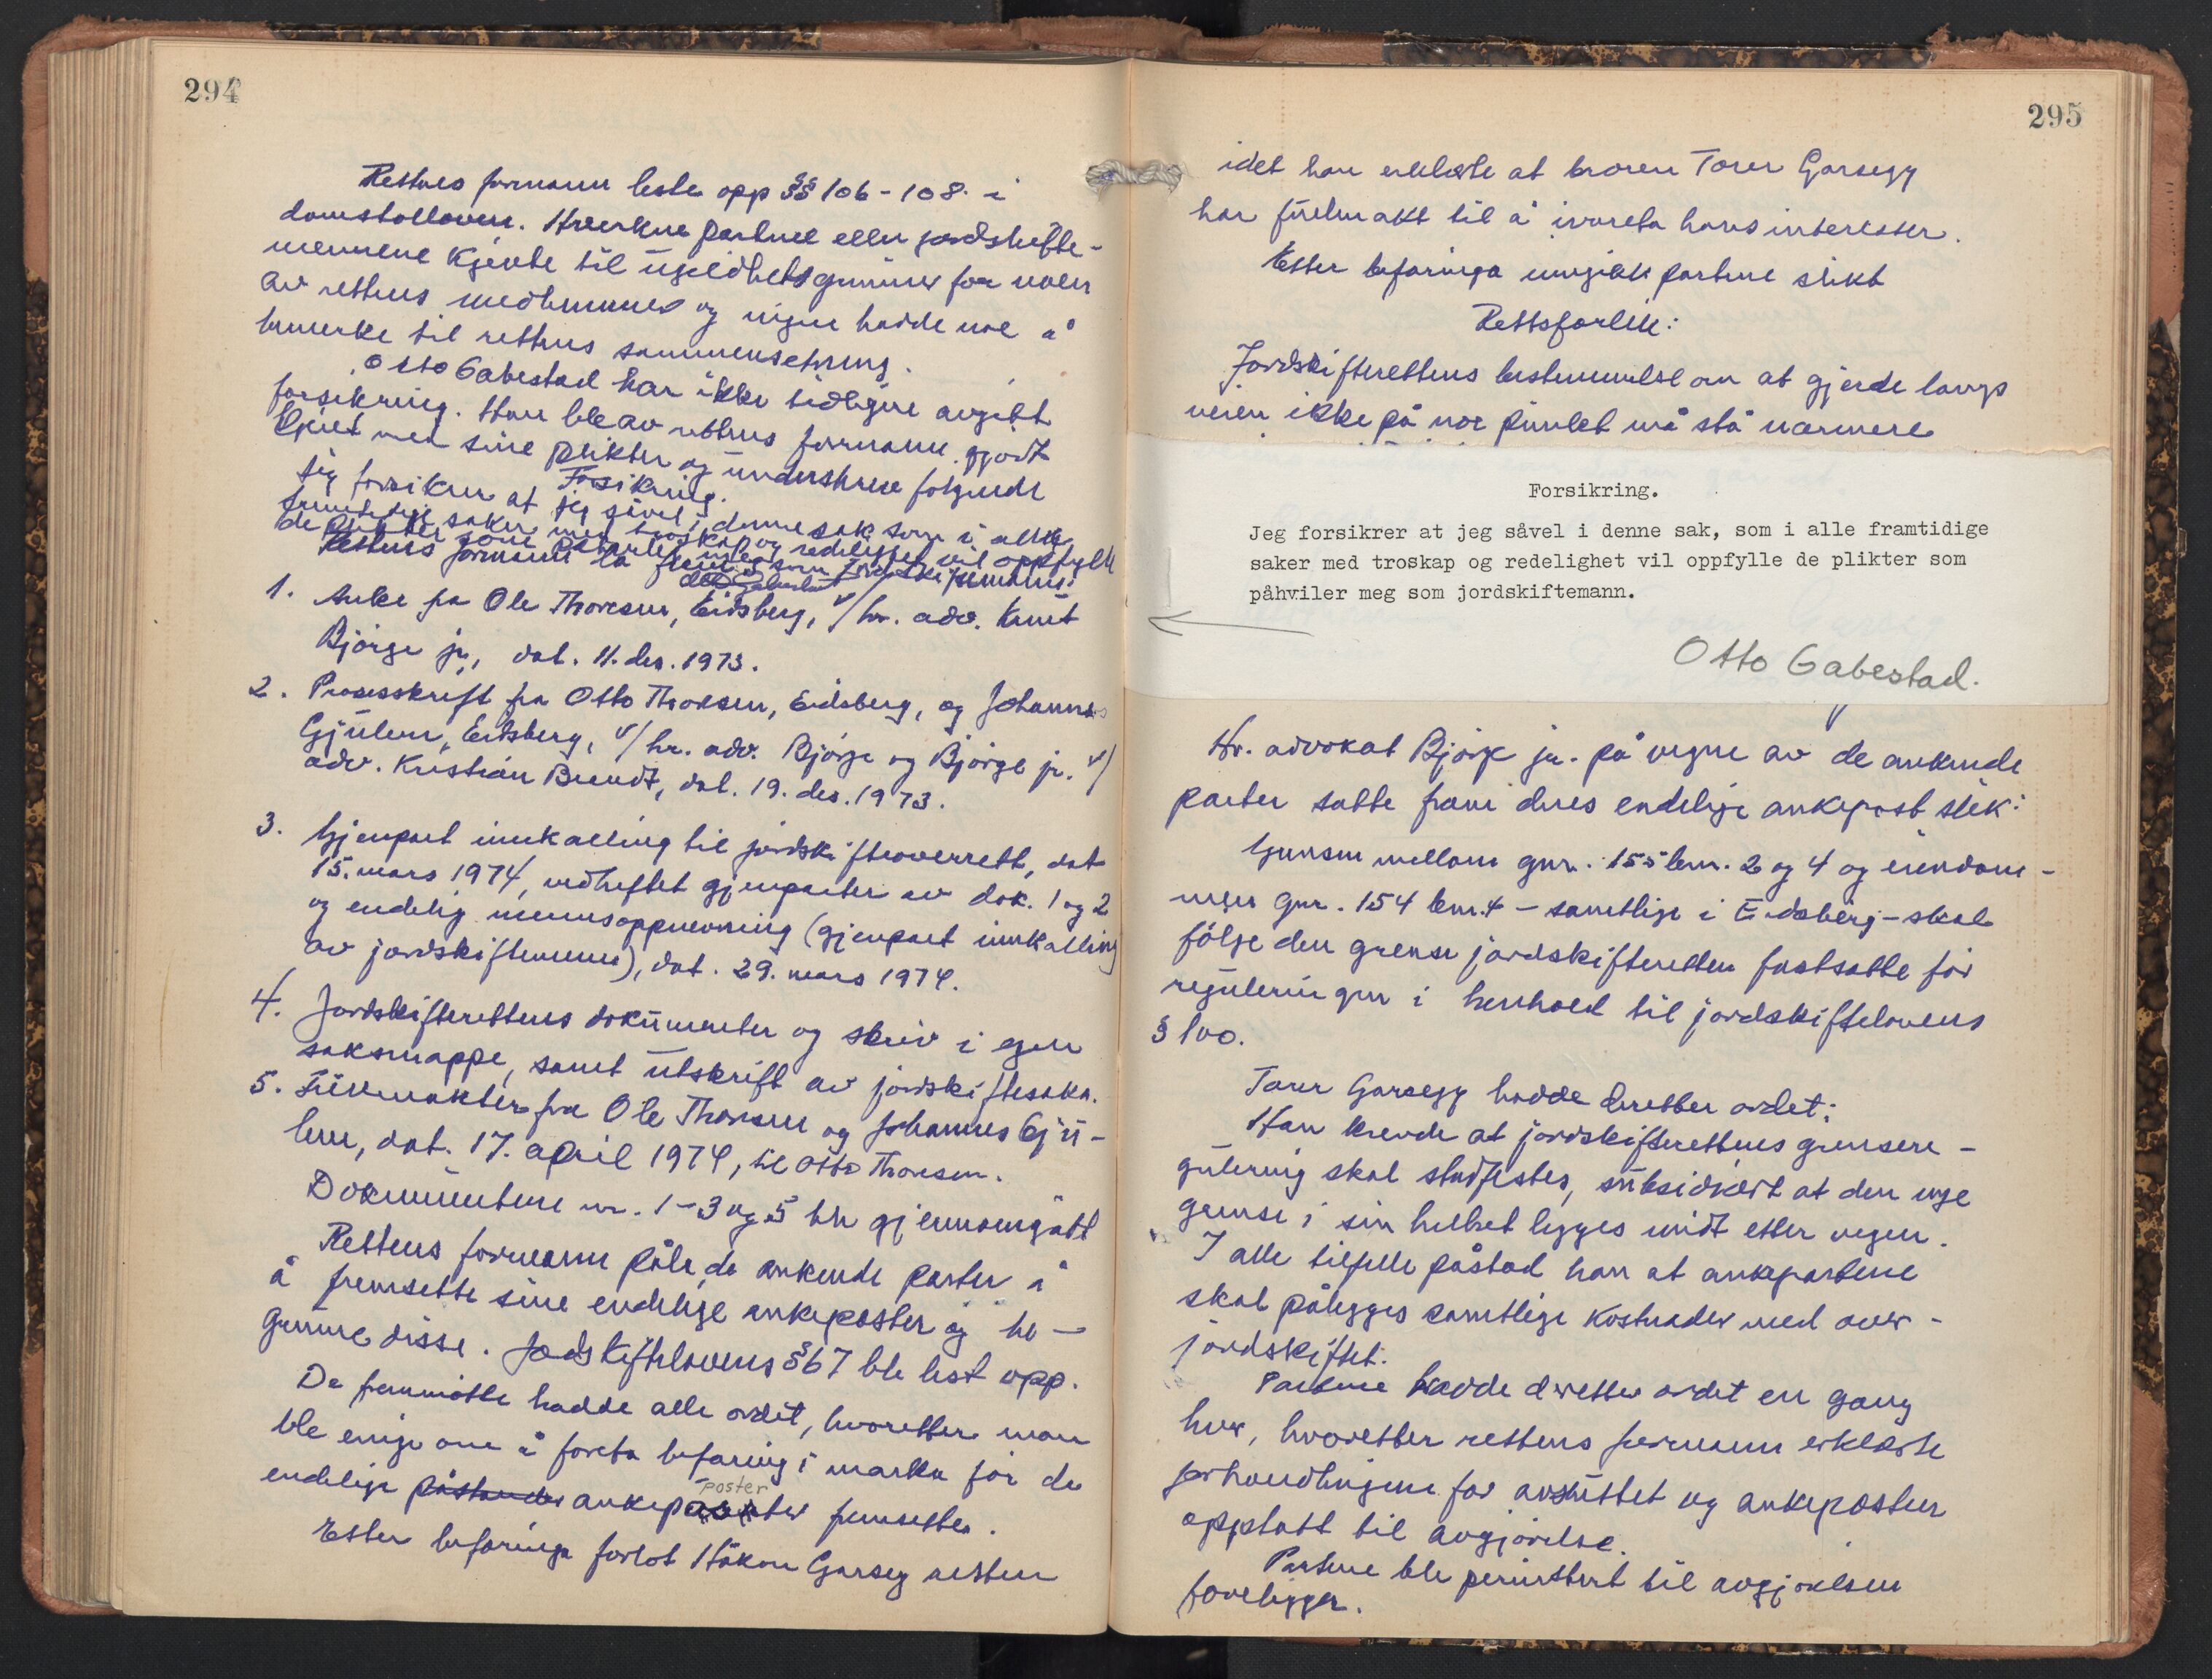 294
Rettens formann leste opp §§ 106 - 108 i
domstolloven. Hverken partene eller jordskifte-
mennene kjente til ugildhetsgrunner for noen
av rettens medlemmer og ingen hadde noe å
bemerke til rettens sammensetning.
Otto Gabestad har ikke tidligere avgitt
forsikring. Han ble av rettens formann gjort
kjent med sine plikter og underskrev følgende
Forsikring.
Jeg forsikrer at jeg såvel i denne sak som i alle
framtidige saker med troskap og redelighet vil oppfylle
de plikter som påhviler meg som jordskiftemann.
Otto Gabestad
Rettens formann la fram:
1. Anke fra Ole Thoresen, Eidsberg, v/ hr. adv. Knut
Bjørge jr., dat. 11. des. 1973.
2. Prosesskrift fra Otto Thoresen, Eidsberg, og Johannes
Gjulem, Eidsberg, v/ hr. adv. Bjørge og Bjørge jr. v/
adv. Kristian Brandt, dat. 19. des. 1973.
3. Gjenpart innkalling til jordskifteoverrett, dat
15. mars 1974, vedheftet gjenparter av dok. 1 og 2
og endelig mennsoppnevning (gjenpart innkalling
av jordskiftemenn), dat. 29. mars 1974.
4. Jordskifterettens dokumenter og skriv i egen
saksmappe, samt utskrift av jordskiftesaka.
5. Fullmakter fra Ole Thoresen og Johannes Gju-
lem, dat. 17. april 1974, til Otto Thoresen.
Dokumentene nr. 1-3 og 5 ble gjennomgått
Rettens formann påla de ankende parter å
å fremsette sine endelige ankeposter og be-
grunne disse. Jordskiftelovens § 67 ble lest opp.
De fremmøtte hadde alle ordet, hvoretter man
ble enige om å foreta befaring i marka før de
endelige påstander ankeposter fremsettes.
poster
Etter befaringa forlot Håkon Garseg retten
295
idet han erklærte at broren Torer Garsegg
har fullmakt til å ivareta hans interesser.
Etter befaringa inngikk partene slikt
Rettsforlik:
Jordskifterettens bestemmelse om at gjerde langs
veien ikke på noe punkt må stå nærmere
Forsikring.
Jeg forsikrer at jeg såvel i denne sak, som i alle framtidige
saker med troskap og redelighet vil oppfylle de plikter som
påhviler meg som jordskiftemann.
Otto Gabestad.
Hr. advokat Bjørge jr. på vegne av de ankende
parter satte fram deres endelige ankepost slik:
Grensen mellom gnr. 155 bnr. 2 og 4 og eiendom-
men gnr. 154 bnr. 4 - samtlige i Eidsberg - skal
følge den grense jordskifteretten fastsatte før
reguleringen i henhold til jordskiftelovens
§ 100.
Torer Garsegg hadde deretter ordet:
Han krevde at jordskifterettens grensere-
gulering skal stadfestes, subsidiært at den nye
grense i sin helhet legges midt etter vegen.
I alle tilfelle påstod han at ankepartene
skal pålegges samtlige kostnader med over-
jordskiftet.
Partene hadde deretter ordet en gang
hver, hvoretter rettens formann erklærte
forhandlingene for avsluttet og ankeposten
opptatt til avgjørelse.
Partene ble permittert til avgjørelsen
foreligger.